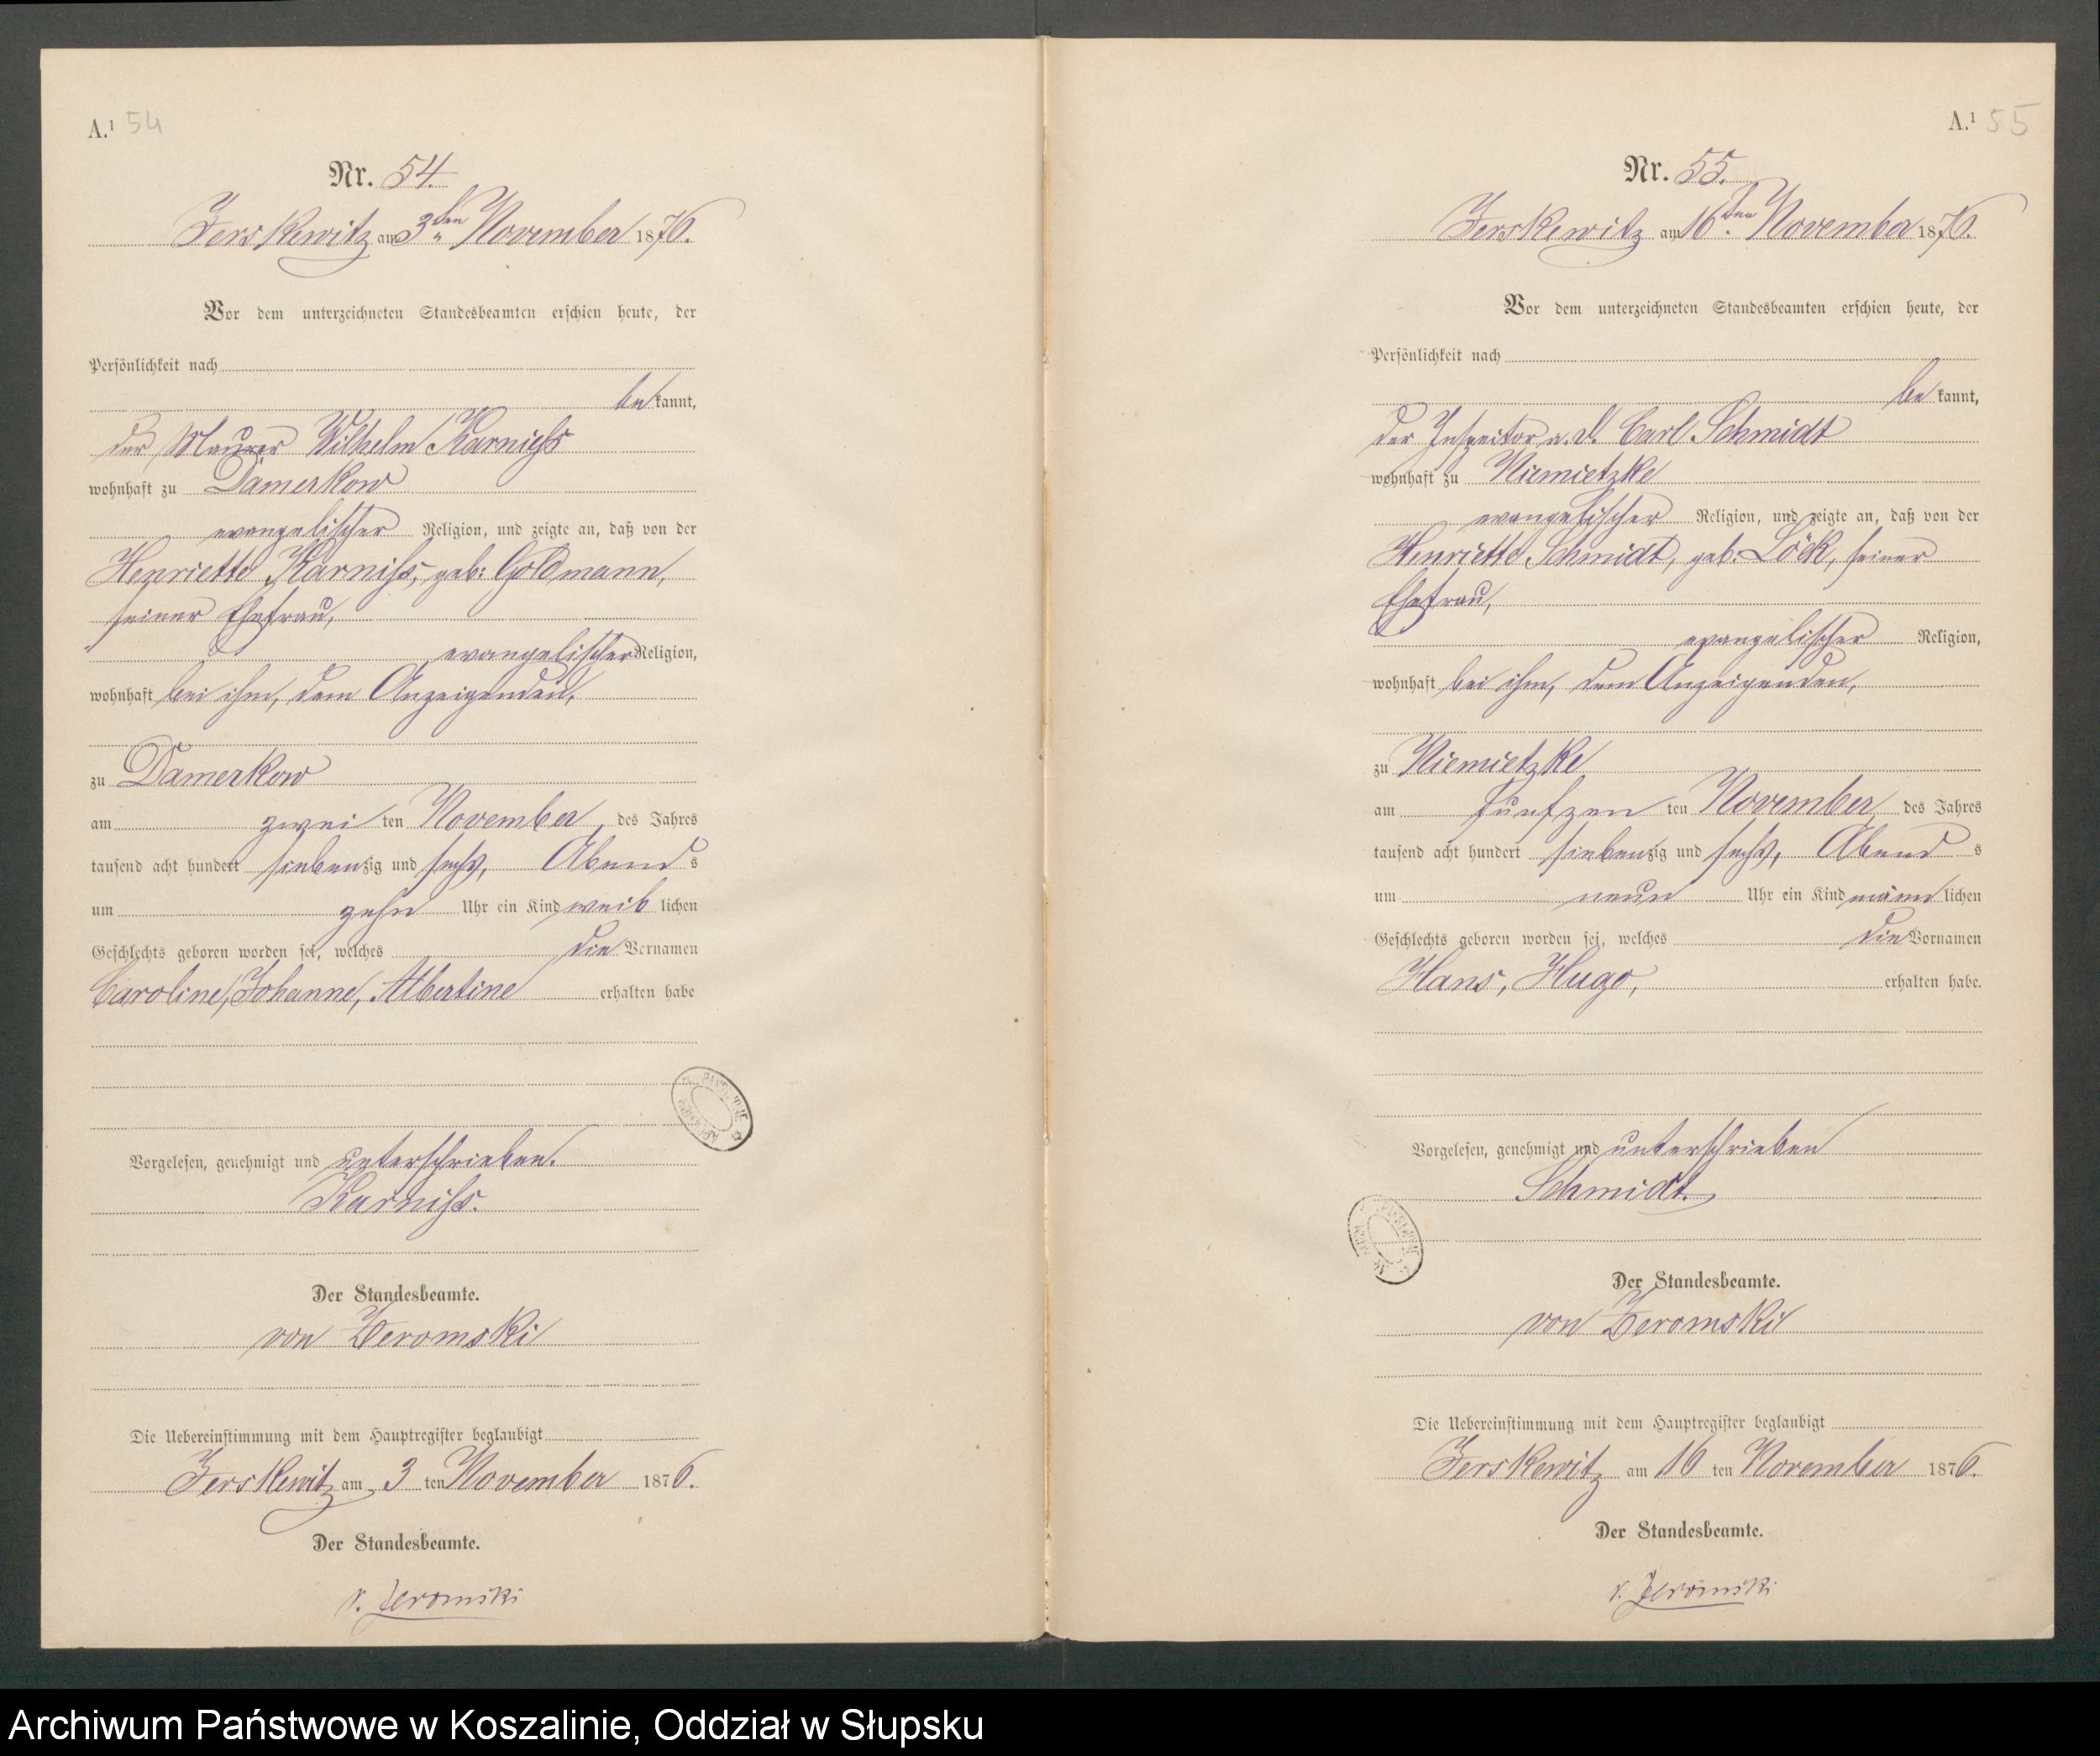 A.¹ 54
Nr. 54.
Zerskewitz am 3ten November 1876.
Vor dem unterzeichneten Standesbeamten erschien heute, der
Persönlichkeit nach
bekannt,
der Maurer Wilhelm Karniss
wohnhaft zu Damerkow
evangelischer Religion, und zeigte an, daß von der
Henriette Karniss, geb: Goldmann,
seiner Ehefrau,
evangelischer Religion,
wohnhaft bei ihm, dem Anzeigenden,
zu Damerkow
am zwei ten November, des Jahres
tausend acht hundert siebenzig und sechs, Abend s
um zehn Uhr ein Kind weib lichen
Geschlechts geboren worden sei, welches die Vornamen
Caroline, Johanne, Albertine erhalten habe
Vorgelesen, genehmigt und unterschrieben.
Karniss.
Der Standesbeamte.
von Zeromski
Die Uebereinstimmung mit dem Hauptregister beglaubigt
Zerskewitz am 3 ten November 1876.
Der Standesbeamte.
v. Zeromski
A.¹ 55
Nr. 55.
Zerskewitz am 16ten November 1876.
Vor dem unterzeichneten Standesbeamten erschien heute, der
Persönlichkeit nach
bekannt,
der Inspector a. D. Carl Schmidt
wohnhaft zu Niemietzke
evangelischer Religion, und zeigte an, daß von der
Henriette Schmidt, geb: Löck, seiner
Ehefrau,
evangelischer Religion,
wohnhaft bei ihm, dem Anzeigenden,
zu Niemietzke
am fünfzen ten November, des Jahres
tausend acht hundert siebenzig und sechs, Abend s
um neun Uhr ein Kind männ lichen
Geschlechts geboren worden sei, welches die Vornamen
Hans, Hugo, erhalten habe.
Vorgelesen, genehmigt und unterschrieben
Schmidt.
Der Standesbeamte.
von Zeromski
Die Uebereinstimmung mit dem Hauptregister beglaubigt
Zerskewitz am 16 ten November 1876.
Der Standesbeamte.
v. Zeromski
Archiwum Państwowe w Koszalinie, Oddział w Słupsku